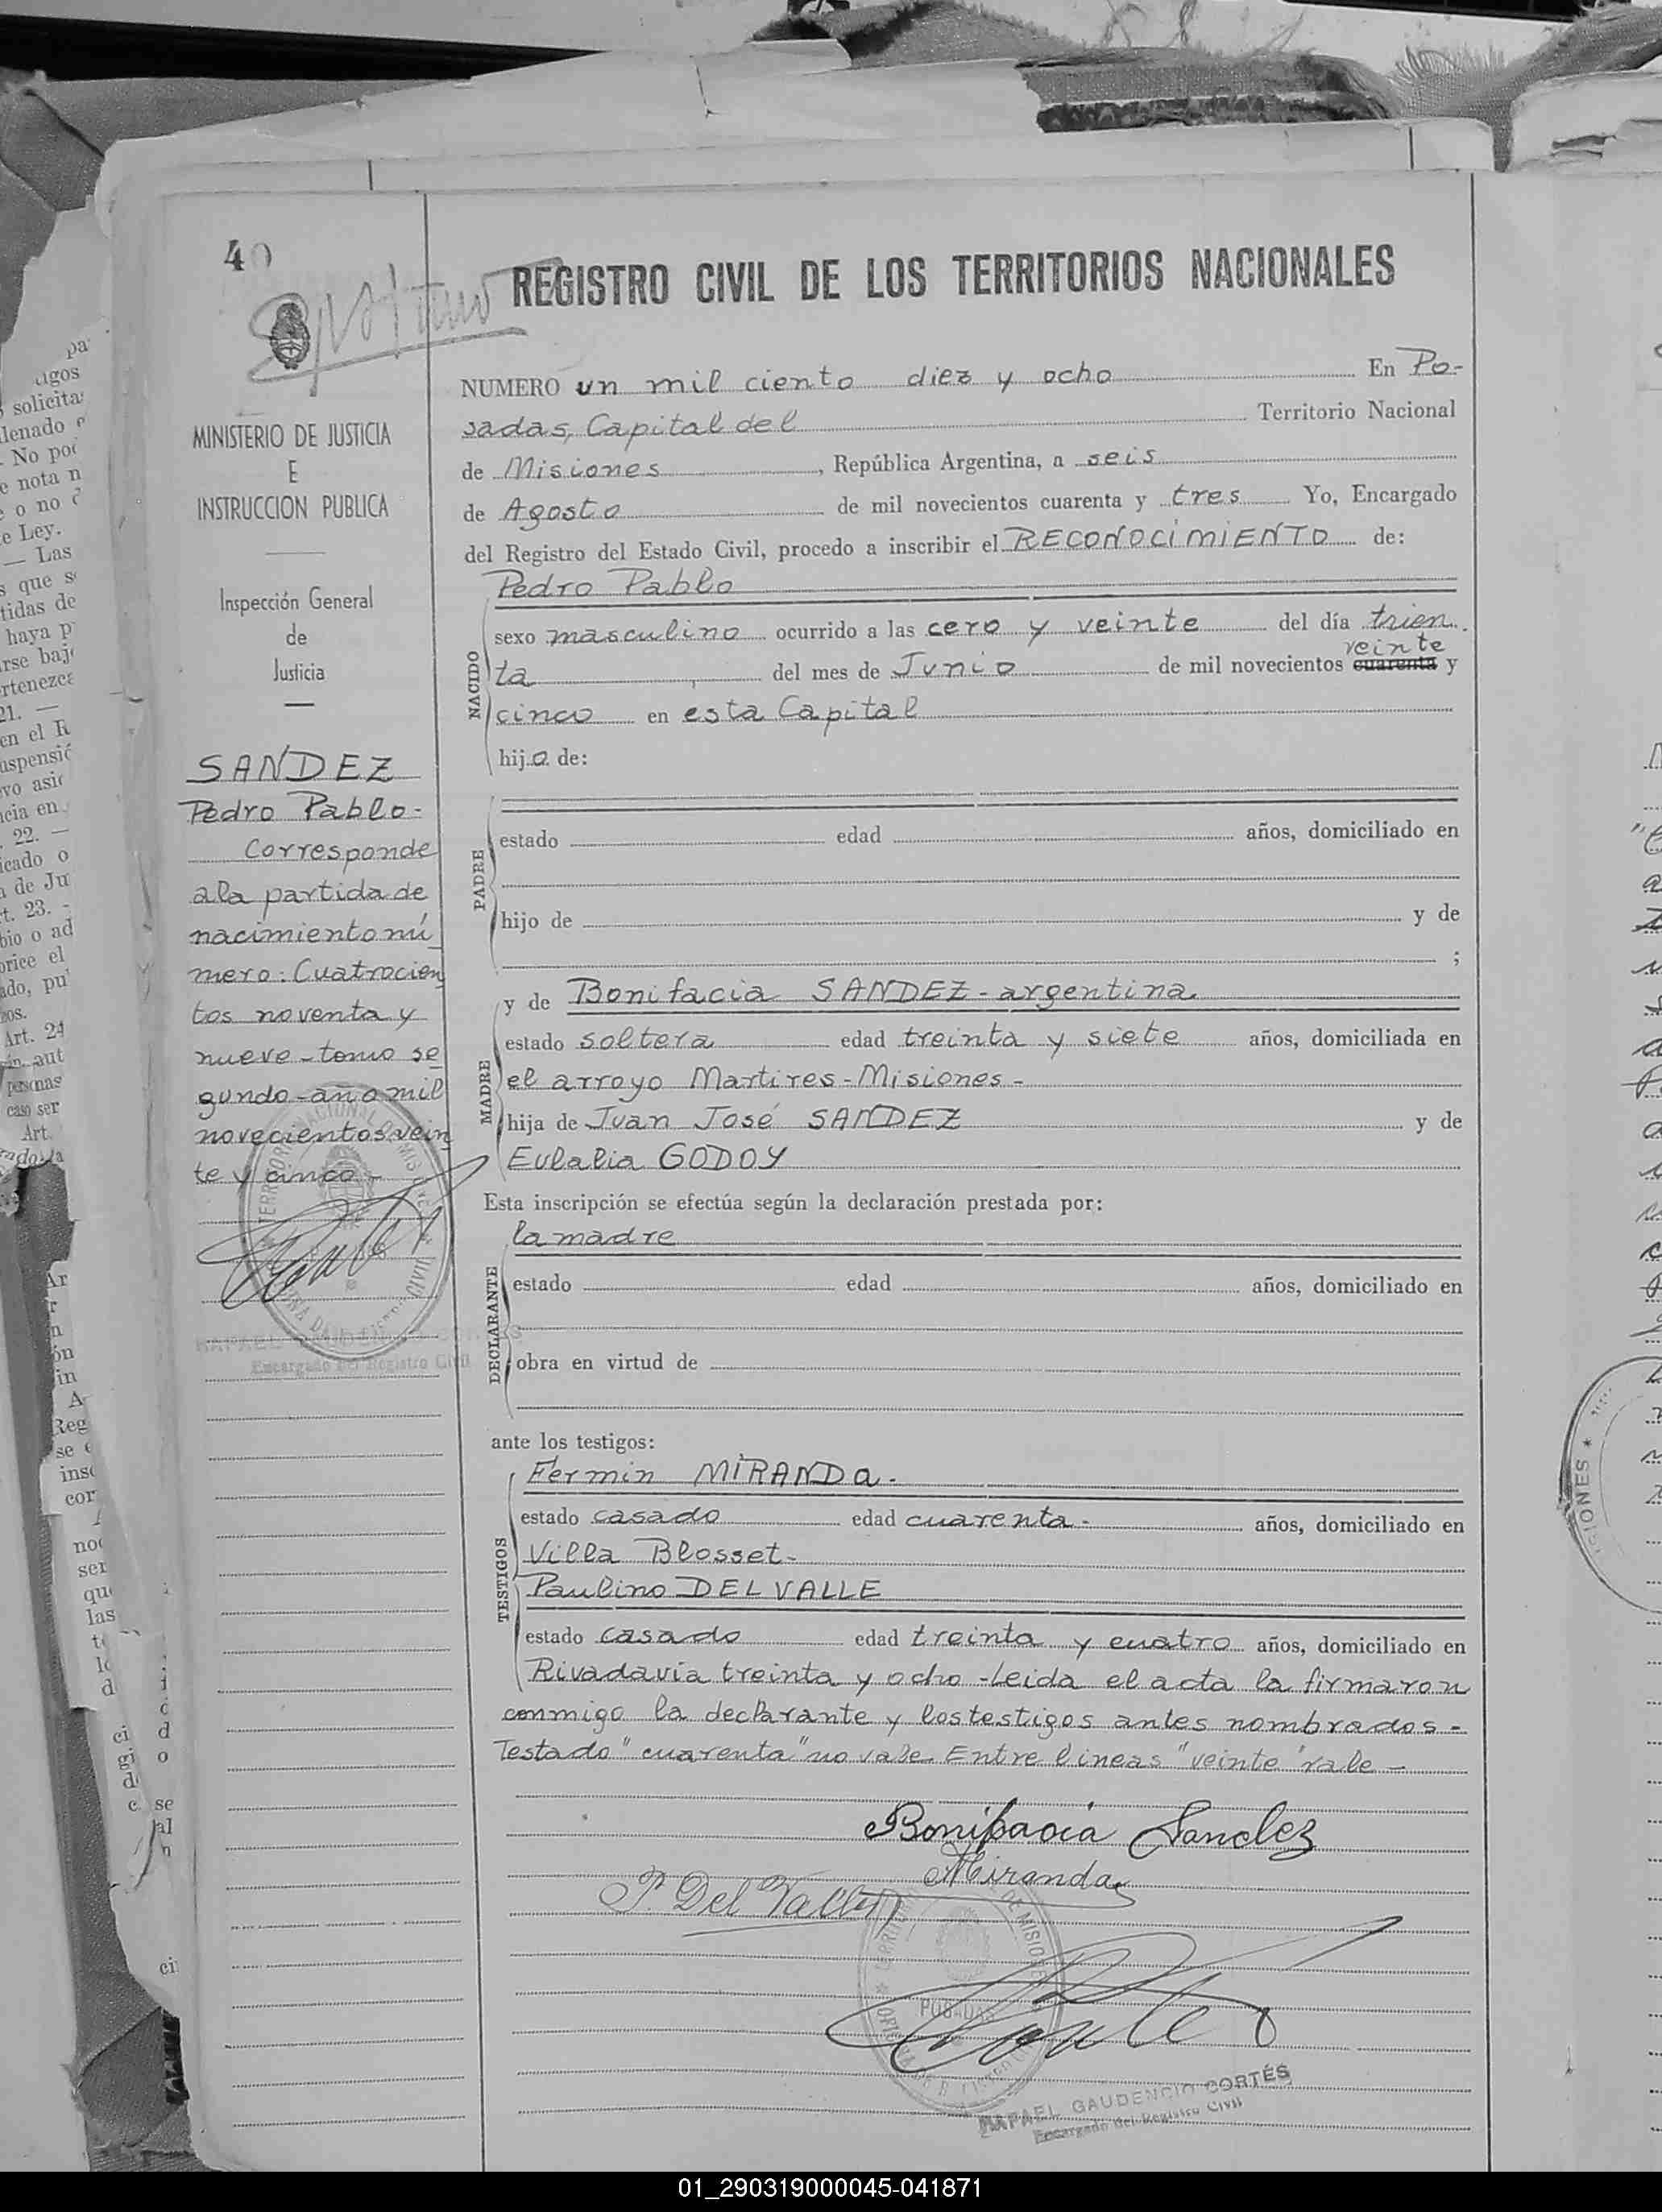 40
REGISTRO CIVIL DE LOS TERRITORIOS NACIONALES
MINISTERIO DE JUSTICIA
E
INSTRUCCION PUBLICA
Inspección General
de
Justicia
SANDEZ
Pedro Pablo-
Corresponde
a la partida de
nacimiento nú
mero: Cuatrocien
tos noventa y
nueve - tomo se
gundo - año mil
novecientos vein
te y cinco -
Encargado del Registro Civil
NUMERO un mil ciento diez y ocho En Po-
sadas, Capital del Territorio Nacional
de Misiones, República Argentina, a seis
de Agosto de mil novecientos cuarenta y tres Yo, Encargado
del Registro del Estado Civil, procedo a inscribir el RECONOCIMIENTO de:
NACIDO
Pedro Pablo
sexo masculino ocurrido a las cero y veinte del día trien
veinte
ta del mes de Junio de mil novecientos cuarenta y
cinco en esta Capital
hijo de:
PADRE
estado edad años, domiciliado en
hijo de y de
;
MADRE
y de Bonifacia SANDEZ - argentina
estado soltera edad treinta y siete años, domiciliada en
el arroyo Martires - Misiones -
hija de Juan José SANDEZ y de
Eulalia GODOY
Esta inscripción se efectúa según la declaración prestada por:
DECLARANTE
la madre
estado edad años, domiciliado en
obra en virtud de
ante los testigos:
TESTIGOS
Fermin MIRANDA.
estado casado edad cuarenta - años, domiciliado en
Villa Blosset-
Paulino DEL VALLE
estado casado edad treinta y cuatro años, domiciliado en
Rivadavia treinta y ocho - Leida el acta la firmaron
conmigo la declarante y los testigos antes nombrados -
Testado "cuarenta" no vale. Entre lineas "veinte" vale -
Bonifacia Sandez
Miranda
P. Del Valle
POSADAS
RAFAEL GAUDENCIO CORTÉS
Encargado del Registro Civil
01_290319000045-041871